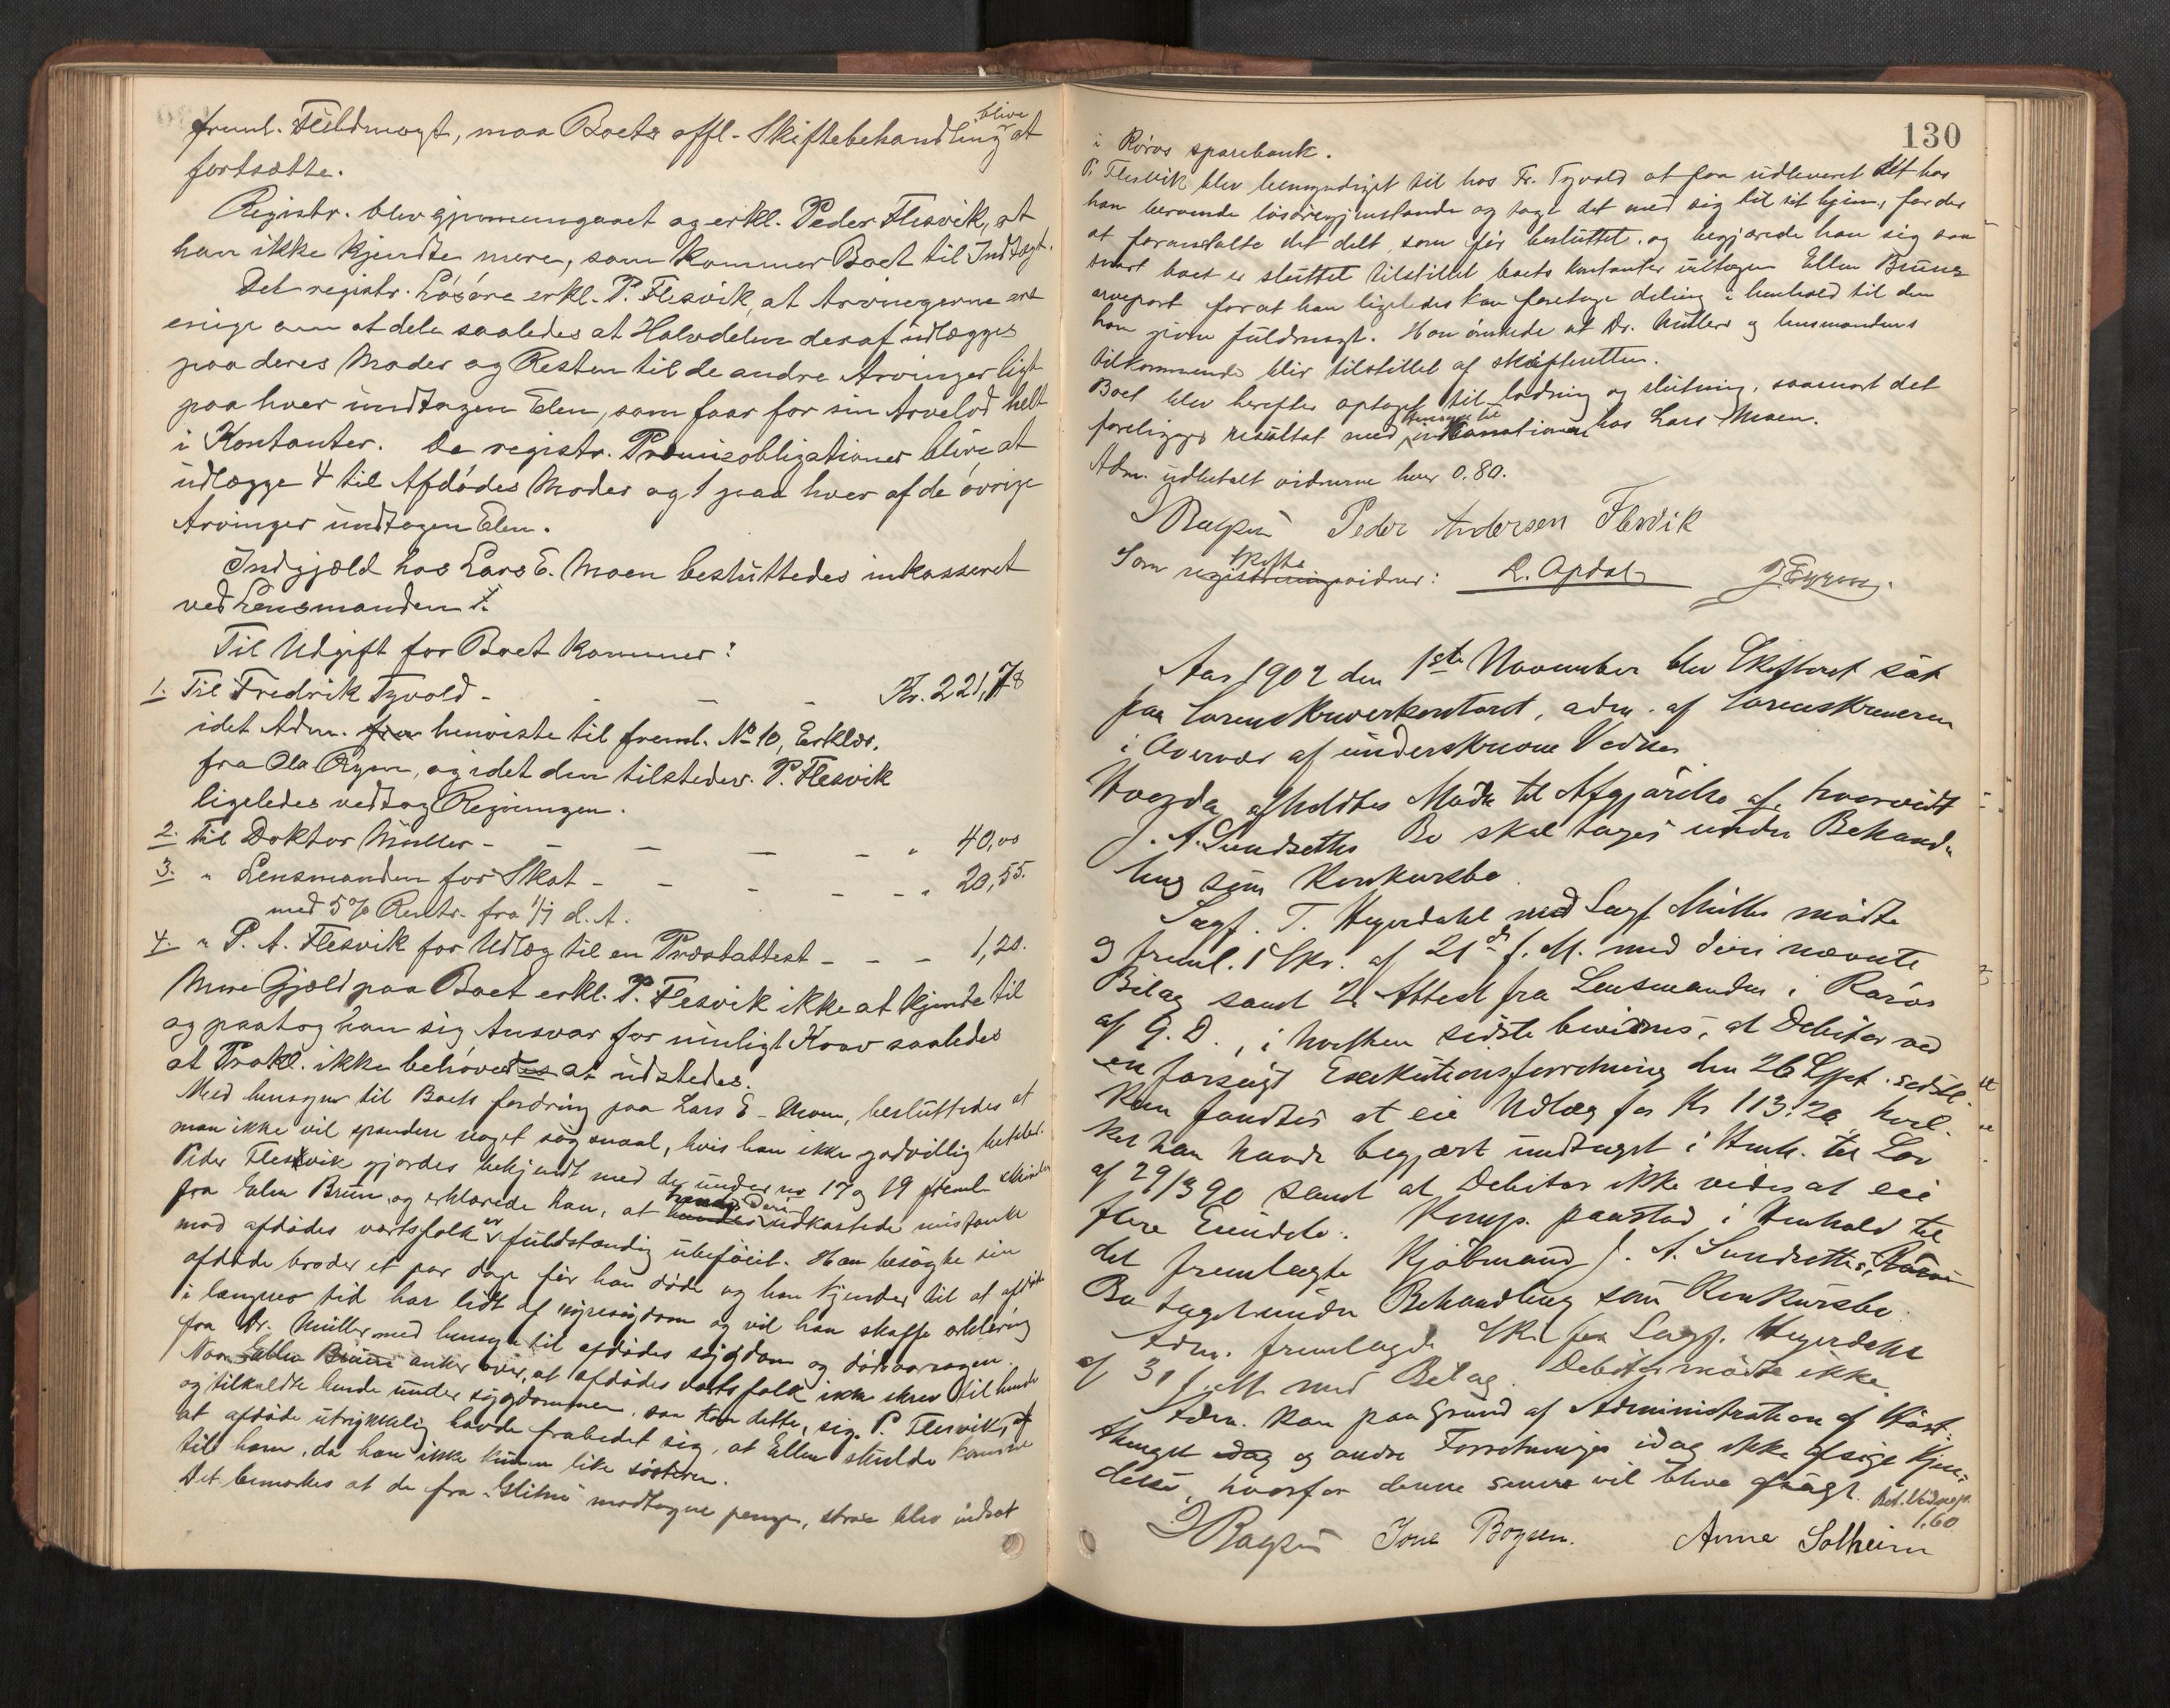 freml. Fuldmagt, maa Boets offl. Skiftebehandling blive at
fortsætte.
Registr. blev gjennemgaaet og erkl. Peder Flesvik, at
han ikke kjendte mere, som kommer Boet til Indtægt.
Det registr. Løsøre erkl. P. Flesvik, at Arvingerne ere
enige om at dele saaledes at Halvdelen deraf udlægges
paa deres Moder og Resten til de andre Arvinger ligt
paa hver undtagen Elen, som faar for sin Arvelod helt
i Kontanter. De registr. Præmieobligationer blive at
udlægge 4 til Afdødes Moder og 1 paa hver af de øvrige
Arvinger undtagen Elen.
Indgjæld hos Lars E. Moen besluttedes inkasseret
ved Lensmanden.
Til Udgift for Boet kommer:
1. Til Fredrik Tyvold - - - - Kr. 221,78
idet Adm. henviste til freml. No 10, Erklær.
fra Ola Rygen, og idet den tilstedev. P. Flesvik
ligeledes vedtog Regningen.
2. Til Doktor Müller - - - - " 40,00
3. " Lensmanden for Skat - - - - " 20,55.
med 5 % Rentr. fra 1/7 d. A.
4. " P. A. Flesvik for Udlæg til en Præstattest - - - 1,20.
Mere Gjæld paa Boet erkl. P. Flesvik ikke at kjende til
og paatog han sig Ansvar for muligt Krav saaledes
at Prokl. ikke behøvedes at udstedes.
Med hensyn til Boets fordring paa Lars E. Moen, besluttedes at
man ikke vil spandere noget søgsmaal, hvis han ikke godvillig betaler.
Peder Flesvik gjordes bekjendt med de under no 17 og 19 freml. skrivelser
fra Elen Brun, og erklærede han, at hendes deri udkastede mistanke
mod afdødes vertsfolk er fuldstændig ubeføiet. Han besøgte sin
afdøde broder et par dage før han døde og han kjender til at afdøde
i længere tid har lidt af nyresygdom og vil han skaffe erklæring
fra Dr. Müller med hensyn til afdødes sygdom og dødsaarsagen.
Naar Ellen Brun anker over, at afdødes vertsfolk ikke skrev til hende
og tilkaldte hende under sygdommen, saa kom dette, sig. P. Flesvik, af
at afdøde utrykkelig havde frabedet sig, at Ellen skulde komme
til ham, da han ikke kunde like søsteren.
Det bemærkes at de fra "Glitne" modtagne penge, strax blev indsat
130
i Røros sparebank.
P. Flesvik blev bemyndiget til hos Fr. Tyvold at faa udleveret alt hos
ham beroende løsøregjenstande og tage det med sig til sit hjem, for der
at foranstalte det delt, som før besluttet, og begjærede han sig saa
snart boet er sluttet tilstillet boets kontanter undtagen Ellen Bruns
arvepart for at han ligeledes kan foretage deling i henhold til den
ham givne fuldmagt. Han ønskede at Dr. Müllers og lensmandens
tilkommende blir tilstillet af skifteretten.
Boet blev herefter optaget til lodning og slutning, saasnart det
foreligger resultat med hensyn til inkassationen hos Lars Moen.
Adm. udbetalt vidnerne hver 0.80.
Peder Andersen Flesvik
Som skifte registreringsvidner: L. Opdal
Aar 1902 den 1ste November blev Skifteret sat
paa Sorenskriverkontoret, adm. af Sorenskriveren
i Overvær af underskrevne Vidner.
Hvorda afholdtes Møde til Afgjørelse af, hvorvidt
J. A. Sundseths Bo skal tages under Behand-
ling som Konkursbo.
Sagf. T. Hegerdahl med Sagf. Müller mødte
og freml. 1 Skr. af 21de f. M. med deri nævnte
Bilag samt 2. Attest fra Lensmanden i Røros
af G. D., i hvilken sidste bevidnes, at Debitor ved
en forsøgt Exekutionsforretning den 26 Sept. sidstl.
kun fandtes at eie Udlæg for Kr 113.20, hvil-
ket han havde begjært undtaget i Henh. til Lov
af 29/3 90 samt at Debitor ikke vides at eie
flere Eiendele. Komp. paastod i Henhold til
det fremlagte Kjøbmand J. A. Sundseths, Røros
Bo taget under Behandling som Konkursbo.
Adm. fremlagde Skr. fra Sagf. Hegerdahl
af 31 f. M. med Bilag. Debitor mødte ikke.
Adm. kan paa Grund af Administration af Høst-
thinget idag og andre Forretninger idag ikke afsige Kjen-
delse, hvorfor denne senere vil blive afsagt. Bet. Vidnep.
1,60
Anne Solheim